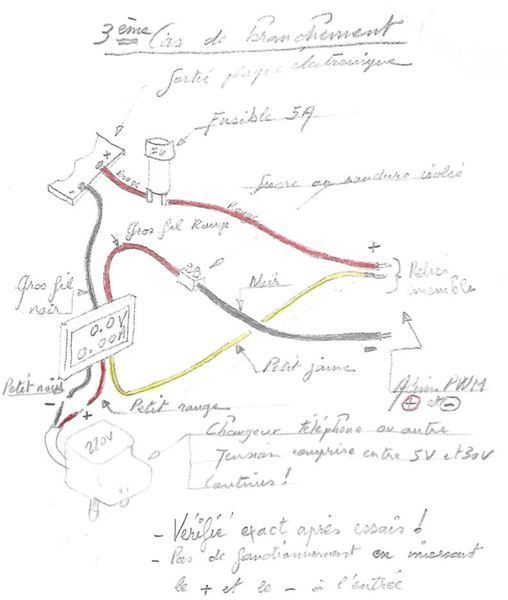 3ème Cas de Branchement
Sortie plaque électronique
Fusible 5A
Rouge
Rouge
Sucre ou soudure isolée
Gros fil Rouge
+
Reliés
ensemble
Gros fil
noir
Noir
0.0V
0.00A
Petit jaune
-
PWM
+ et -
Petit noir
-
+
Petit rouge
220V
Chargeur téléphone ou autre
Tension comprise entre 5V et 30V
Continus!
- Vérifié exact après essais!
- Pas de fonctionnement en inversant
le + et le - à l'entrée